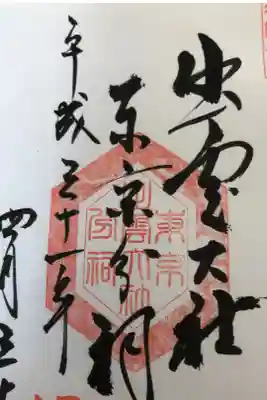 出雲大社
東京分祠
平成三十一年
四月五
東京
出雲大社
分祠